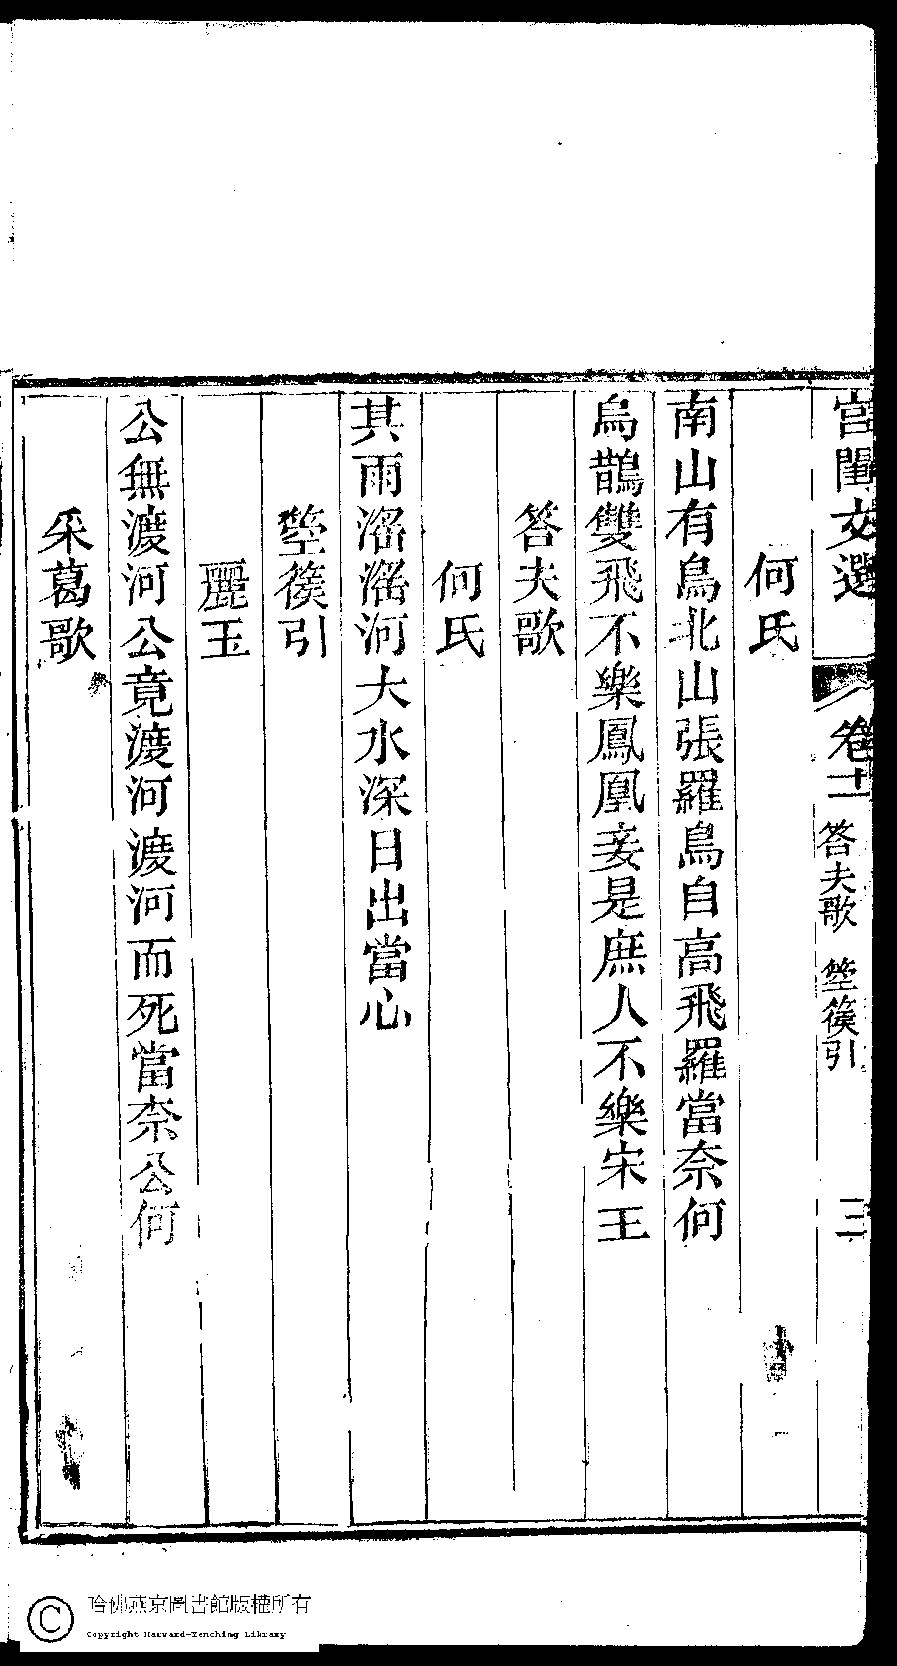 宮閨文選 卷十一 答夫歌 箜篌引 三
何氏
南山有鳥北山張羅鳥自高飛羅當奈何
烏鵲雙飛不樂鳳凰妾是庶人不樂宋王
答夫歌
何氏
其雨滛滛河大水深日出當心
箜篌引
麗玉
公無渡河公竟渡河渡河而死當奈公何
采葛歌
哈佛燕京圖書館版權所有
Copyright Harvard-Yenching Library